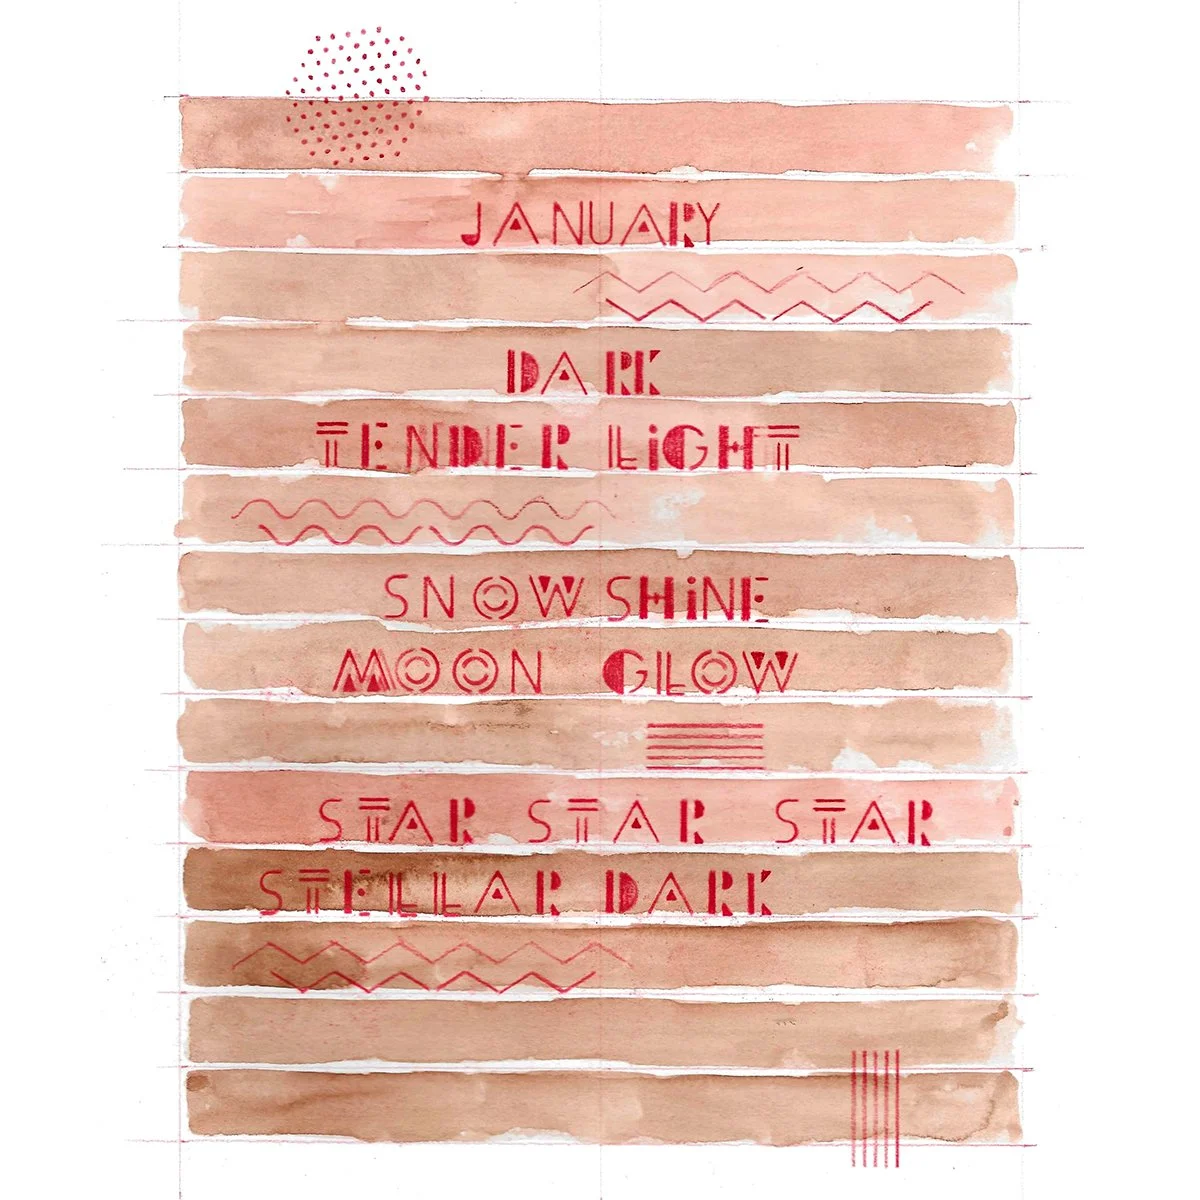 JANUARY
DARK
TENDER LiGHT
SNOW SHiNE
MOON GLOW
STAR STAR STAR
STELLAR DARK